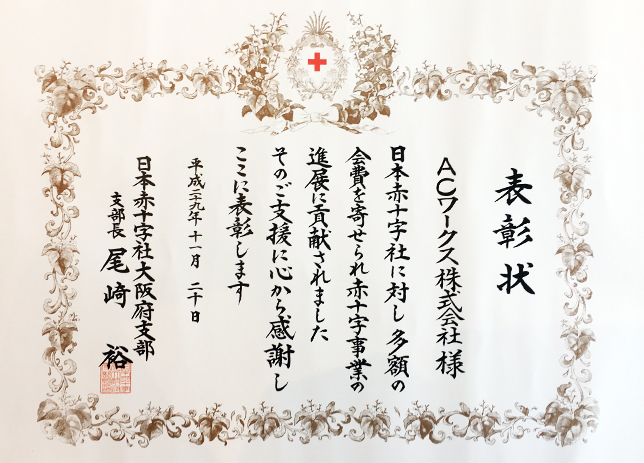 表彰状
ACワークス株式会社 様
日本赤十字社に対し多額の
会費を寄せられ赤十字事業の
進展に貢献されました
そのご支援に心から感謝し
ここに表彰します
平成二十九年 十一月 二十日
日本赤十字社大阪府支部
支部長 尾崎 裕